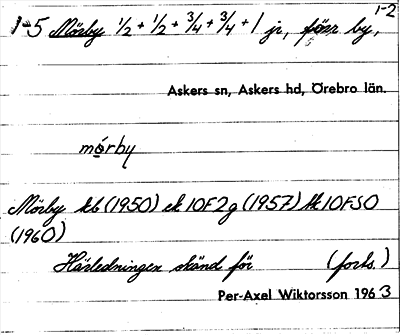 1-2
1-5 Mörby 1/2 + 1/2 + 3/4 + 3/4 + 1 jr, förr by,
Askers sn, Askers hd, Örebro län.
mórby
Mörby kb (1950) ek 10F2g (1957) tk 10FSO
(1960)
Härledningen okänd för (forts.)
Per-Axel Wiktorsson 1963